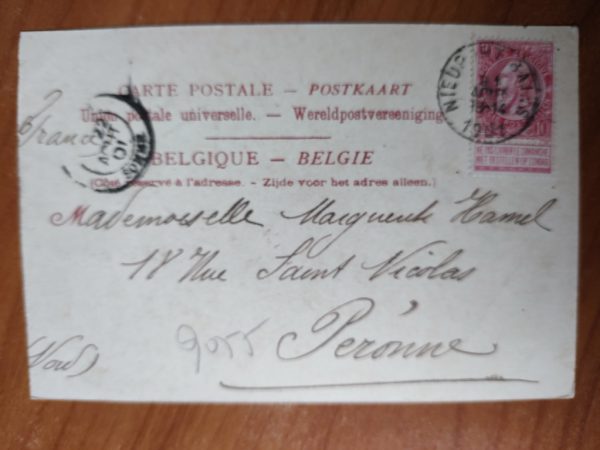 CARTE POSTALE – POSTKAART
Union postale universelle. – Wereldpostvereeniging.
BELGIQUE – BELGIE
(Côté réservé à l'adresse. – Zijde voor het adres alleen.)
France
Mademoiselle Marguerite Hamel
18 Rue Saint Nicolas
Péronne
(Nord)
9055
SOMME
01
1901
10
NE PAS LIVRER LE DIMANCHE
NIET BESTELLEN OP ZONDAG